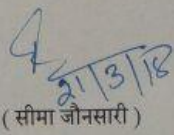 21/3/18
( सीमा जौनसारी )